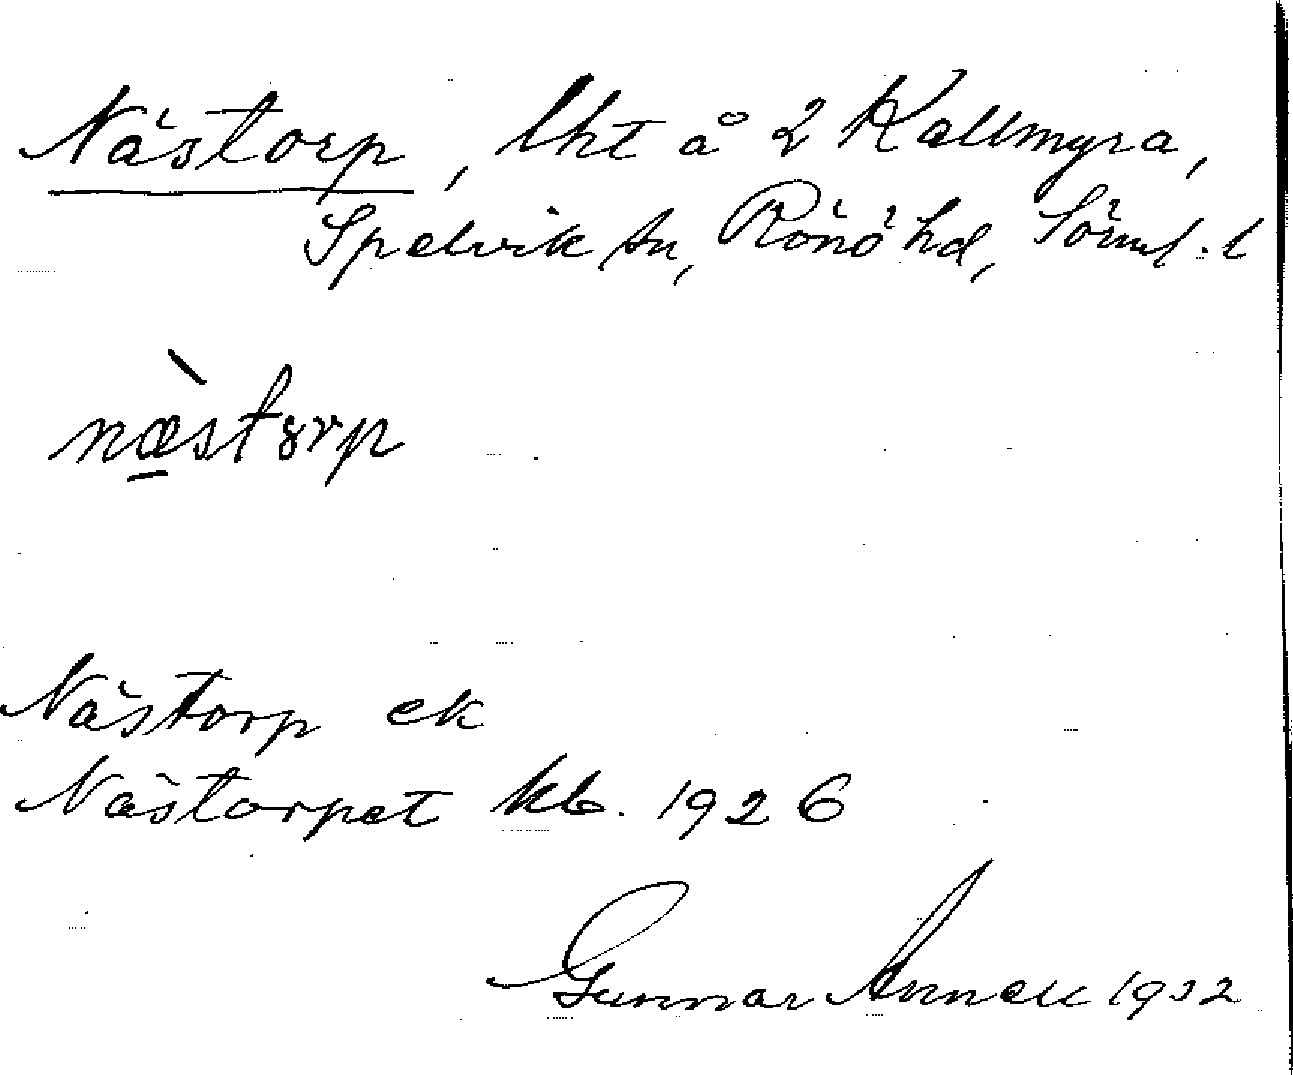 Nästorp, lht å 2 Kallmyra,
Spelvik sn, Rönö hd, Söml. l
næ̀stȣrp
Nästorp ek
Nästorpet kb. 1926
Gunnar Annell 1932